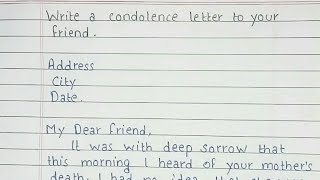 Write a condolence letter to your
friend.
Address
City
Date.
My Dear friend,
It was with deep sorrow that
this morning I heard of your mother's
death. I had no idea that